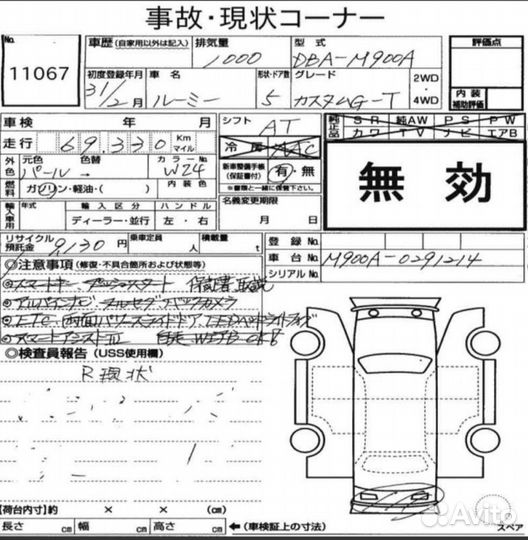 事故・現状コーナー
No.
11067
車歴 (自家用以外は記入)
排気量
1000
型式
DBA-M900A
評価点
初度登録年月
31/2月
車名
ルーミー
形状・ドア数
5
グレード
カスタムG-T
2WD
・
4WD
内装
補助評価
車検 年 月
シフト
AT
純正品
SR 純AW PS PW
カワ TV ナビ エアB
走行 69.330 Km マイル
冷房 AAC
外色
元色 色替
パール→
カラーNo.
W24
新車整備手帳
(保証書付)
有・無
※書類と一緒に保管下さい。
無効
燃料
ガソリン・軽油・( )
内装色
名義変更期限
月 日
輸入車用
年式
輸入区分
ハンドル
ディーラー・並行
左・右
リサイクル預託金
9,130円
乗車定員 人
積載量 t
登録No.
車台No.
M900A-0291214
シリアルNo.
◎注意事項 (修復・不具合箇所および状態等)
◎スマートキー プッシュスタート 保証書 取説
◎アルパインナビ フルセグ バックカメラ
◎ETC 両面パワースライドドア LEDヘッドライト
◎スマートアシストⅢ
◎検査員報告 (USS使用欄)
R現状
【荷台内寸】約 × × (㎝)
長さ ㎝ 幅 ㎝ 高さ ㎝
←(車検証上の寸法)
スペア
Avito